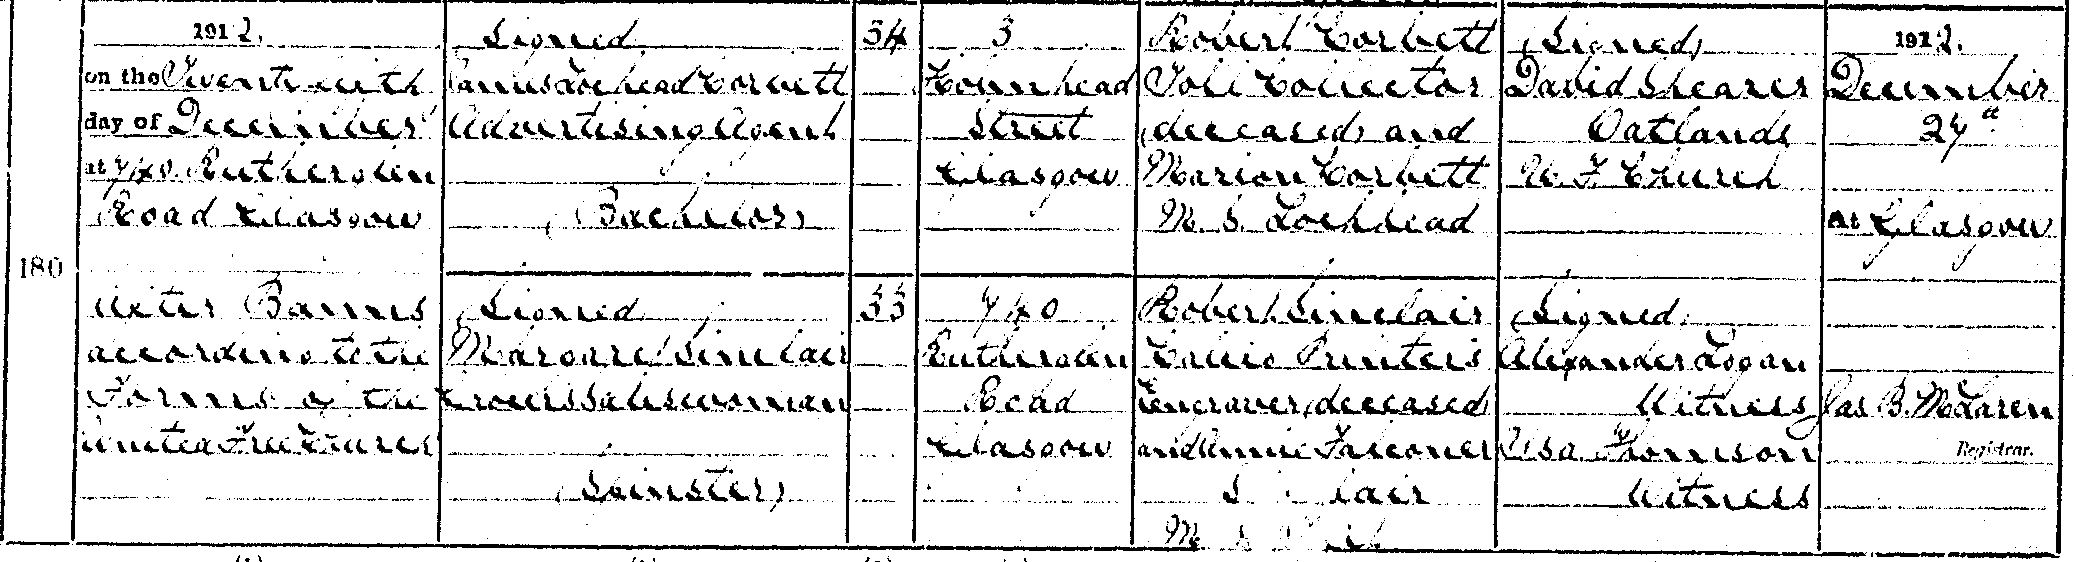 180
1912.
on the Twentysixth
day of December
at 740 Rutherglen
Road Glasgow
After Banns
according to the
Forms of the
United Free Church
(Signed)
James Lochead Corbett
Advertising Agent
(Bachelor)
(Signed)
Margaret Sinclair
Saleswoman
(Spinster)
34
33
3
Street
Glasgow
740
Rutherglen
Road
Glasgow
Robert Corbett
Toll Collector
(deceased) and
Marion Corbett
M. S. Lochhead
Robert Sinclair
Calico Printer's
Engraver (deceased)
and Annie Falconer
M. S.
(Signed)
David Shearer
Oatlands
U. F. Church
(Signed)
Alexander Logan
Witness
Thomson
Witness
1912.
December
27th
at Glasgow
Jas B. McLaren
Registrar.